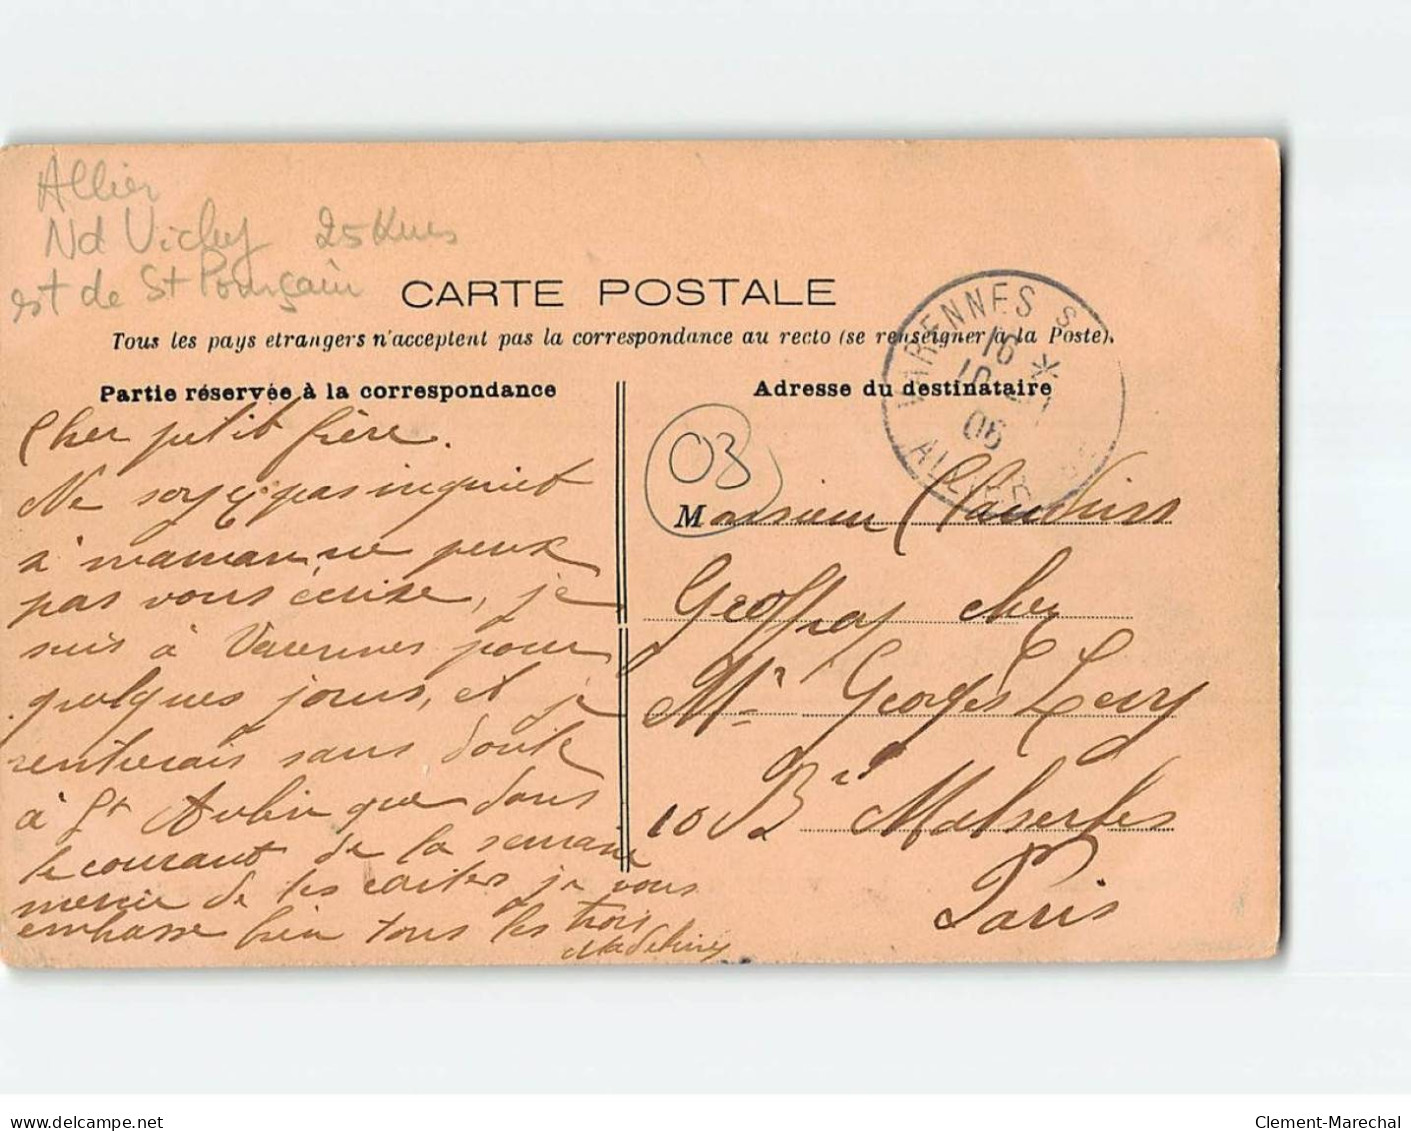 Allier
Nd Vichy 25 kms
est de St Pourçain
CARTE POSTALE
Tous les pays etrangers n'acceptent pas la correspondance au recto (se renseigner à la Poste).
Partie réservée à la correspondance
Cher petit frère.
Ne soyez pas inquiet
à maman ne peux
pas vous écrire, je
suis à Varennes pour
quelques jours, et je
rentrerais sans doute
à St Aubin que dans
le courant de la semaine
mercie de tes cartes je vous
embrasse bien tous les trois
Adresse du destinataire
VARENNES S
16
06
ALLIER
03
Monsieur
Geoffray chez
Mr Georges Levy
Bd Malserbes
Paris
delcampe.net
Clement-Marechal